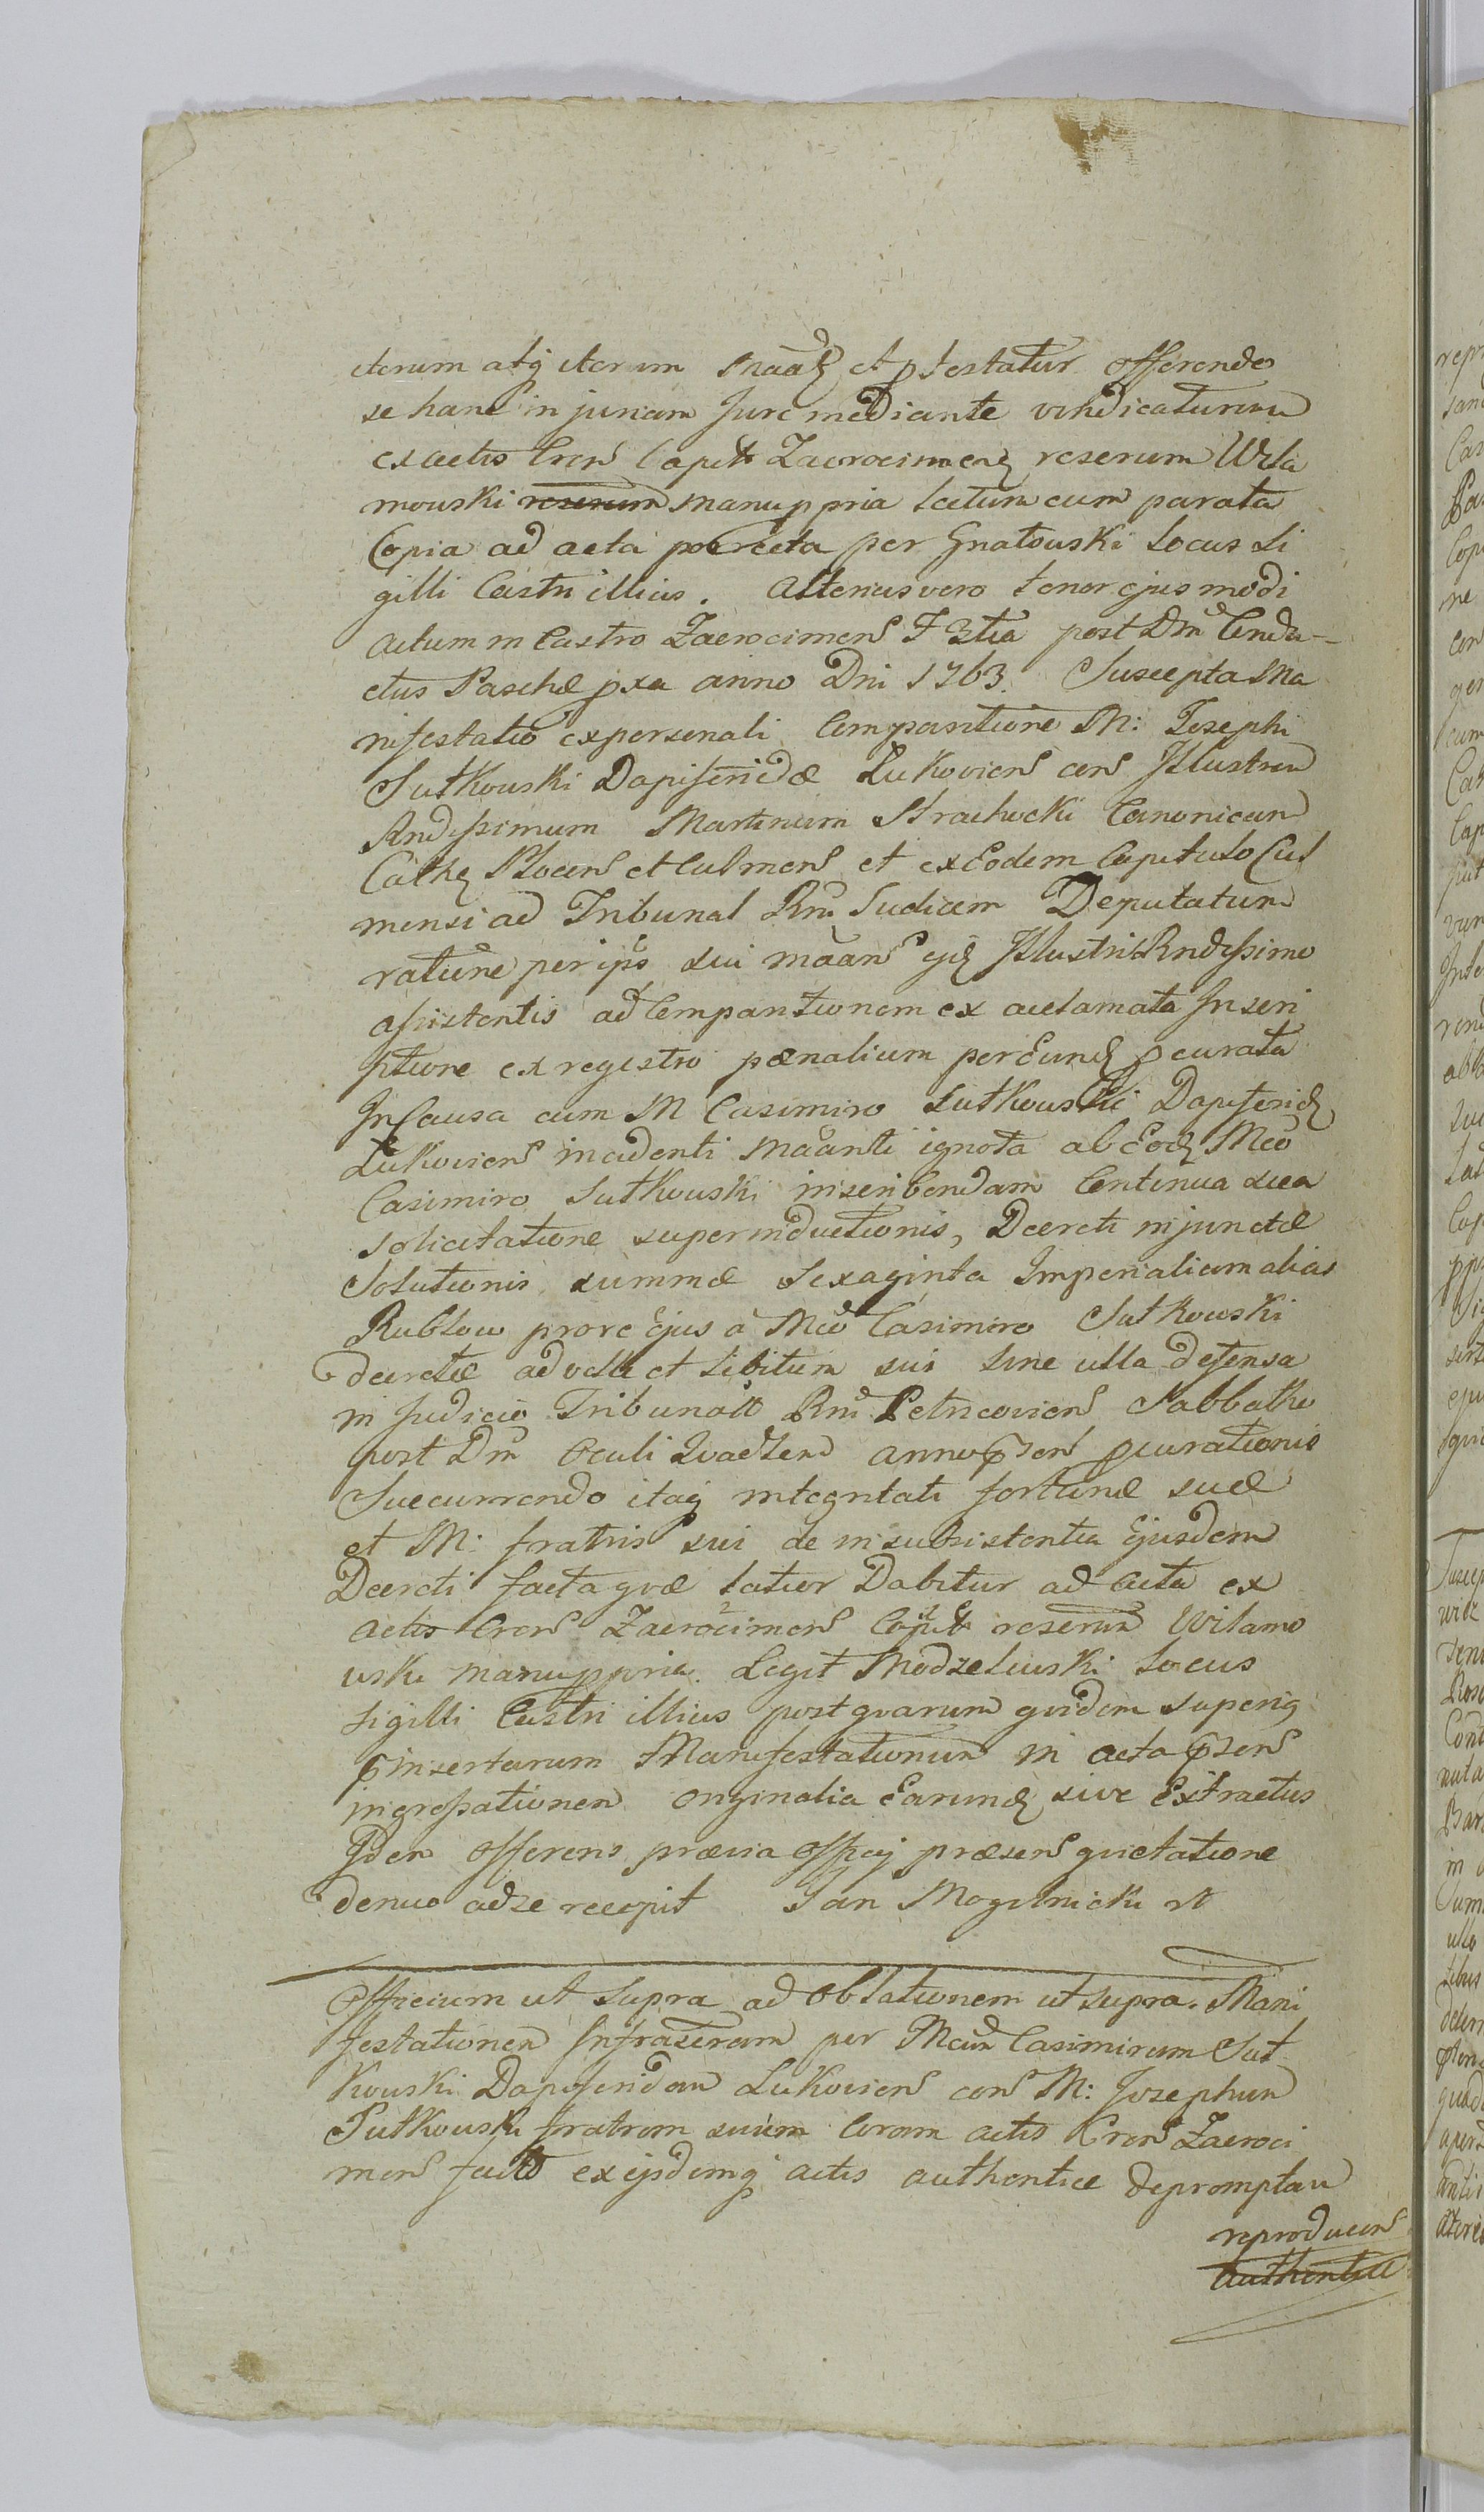 iterum atq iterum Maatq et ptestatur offerendo
se hanc injuriam Jure mediante vindicaturum
ex actis Cren Capit Zacrocimen reserum Wila
mowski reserum manuppria Lectum cum parata
Copia ad acta porrecta per Gnatowski Locus Si
gilli Castri illius. Alterius vero tenor ejusmodi
actum in Castro Zacrocimen F 3tia post Dm Condu-
ctus Paschæ pxa anno Dni 1763. Suscepta Ma
nifestatio ex personali Comparitione M: Josephi
Sutkowski Dapiferidæ Lukoviens cons Illustrem
Rndissimum Martinum Strachocki Canonicum
Cathq Plocens et Culmens et ex Eodem Capitulo Cul
mensi ad Tribunal Rni Judicem Deputatum
ratione per ips sui maan qq Illustri Rndissimo
assistentis ad Comparitionem ex acclamata Inscri
ptione ex regestro pænalium per Eund pcurata
In Causa cum M Casimiro Sutkowski Dapiferid
Lukoviens incidenti maanti ignota ab Eod Mco
Casimiro Sutkowski inscribendam Continua sua
solicitatione superinductionis, Decreti injunctæ
Solutionis summæ Sexaginta Imperialium alias
Rublow pro re Ejus à Mco Casimiro Sutkowski
decretæ ad velle et Libitum sui sine ulla defensa
in Judicio Tribunalt Rni Petricoviens Sabbatho
post Dm Oculi Quadzen anno pzen pcurationis
Succurrendo itaq integritati fortunæ suæ
et M: fratris sui de insubsistentia Ejusdem
Decreti facta quæ latior Dabitur ad acta ex
actis Cren Zacrocimens Capit reserum Wilamo
wski manuppria. Legit Modzelewski Locus
Sigilli Castri illius post quarum quidem superiq
pinsertarum Manifestationum in acta pzen
ingrossationem originalia Earund sive Extractus
Idem offerens prævia officij præsen quietatione
denuo ad se recepit Jan Mogilnicki
Officium ut Supra ad Oblationem ut supra. Mani
festationem Infrascram per Mcum Casimirum Sut
kowski Dapiferidam Lukoviens cons M: Josephum
Sutkowski fratrem suum Coram actis Crens Zacroci
mens fact ex ejsdemq actis authentice depromptam
reproducens
authentice